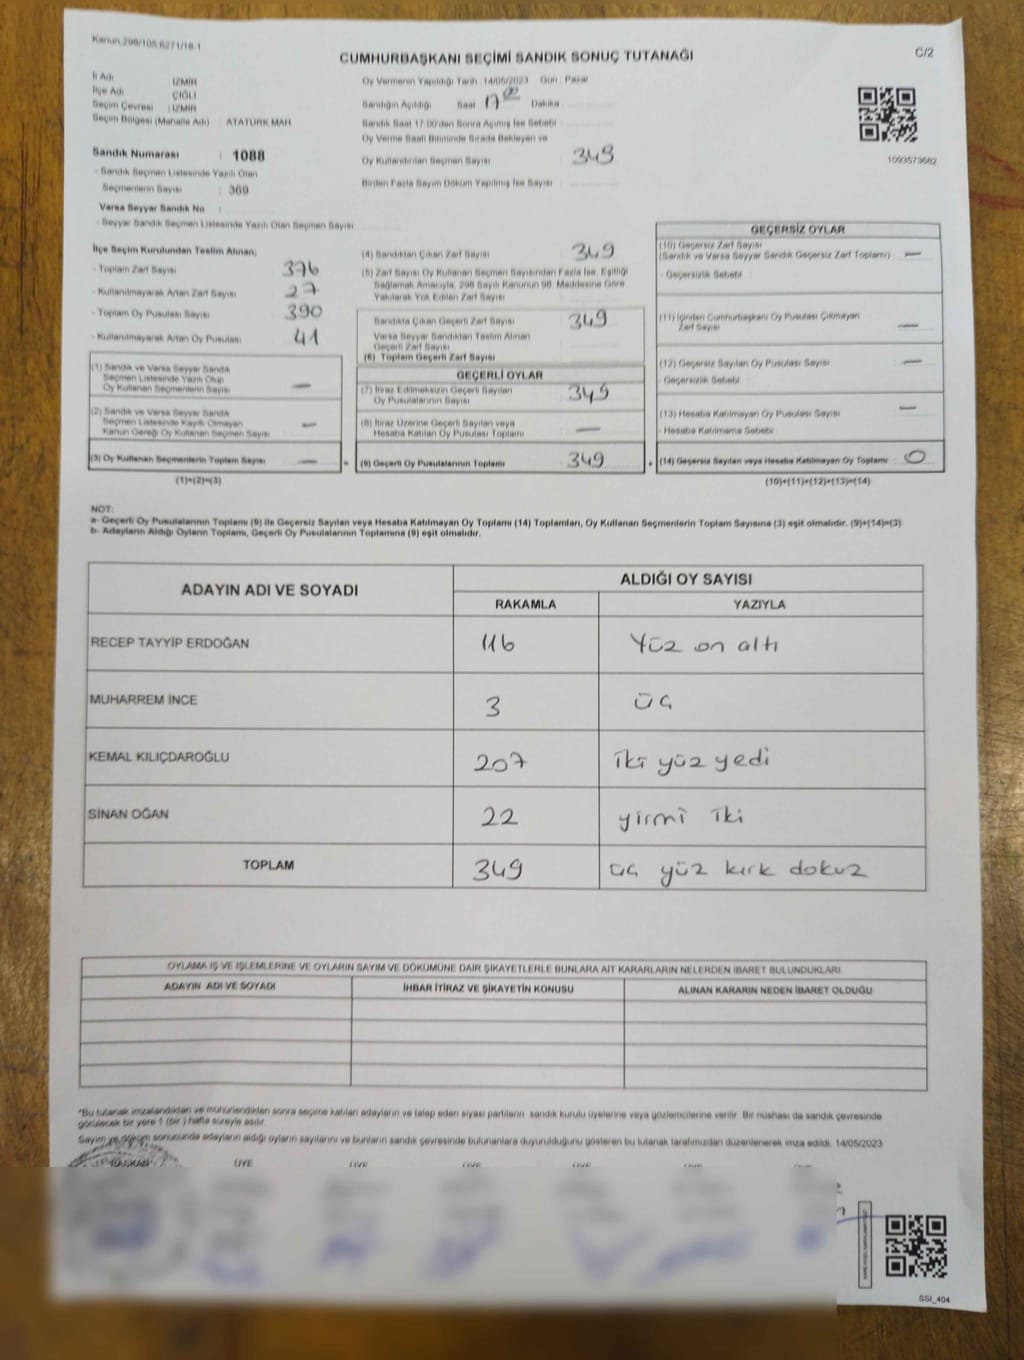 Kanun.298/105.6271/16-1
CUMHURBAŞKANI SEÇİMİ SANDIK SONUÇ TUTANAĞI
C/2
İl Adı : İZMİR
İlçe Adı : ÇİĞLİ
Seçim Çevresi : İZMİR
Seçim Bölgesi (Mahalle Adı) : ATATÜRK MAH
Sandık Numarası : 1088
- Sandık Seçmen Listesinde Yazılı Olan
Seçmenlerin Sayısı : 369
Varsa Seyyar Sandık No :
- Seyyar Sandık Seçmen Listesinde Yazılı Olan Seçmen Sayısı:
Oy Vermenin Yapıldığı Tarih : 14/05/2023 Gün : Pazar
Sandığın Açıldığı Saat 17 00 Dakika
Sandık Saat 17:00'den Sonra Açımış İse Sebebi :
Oy Verme Saati Bitiminde Sırada Bekleyen ve
Oy Kullandırılan Seçmen Sayısı : 349
Birden Fazla Sayım Döküm Yapılmış İse Sayısı :
1093573662
İlçe Seçim Kurulundan Teslim Alınan;
- Toplam Zarf Sayısı : 376
- Kullanılmayarak Artan Zarf Sayısı : 27
- Toplam Oy Pusulası Sayısı : 390
- Kullanılmayarak Artan Oy Pusulası : 41
(1) Sandık ve Varsa Seyyar Sandık
Seçmen Listesinde Yazılı Olup
Oy Kullanan Seçmenlerin Sayısı : —
(2) Sandık ve Varsa Seyyar Sandık
Seçmen Listesinde Kayıtlı Olmayan
Kanun Gereği Oy Kullanan Seçmen Sayısı : —
(3) Oy Kullanan Seçmenlerin Toplam Sayısı : —
(1)+(2)=(3)
(4) Sandıktan Çıkan Zarf Sayısı : 349
(5) Zarf Sayısı Oy Kullanan Seçmen Sayısından Fazla İse, Eşitliği
Sağlamak Amacıyla, 298 Sayılı Kanunun 98. Maddesine Göre
Yakılarak Yok Edilen Zarf Sayısı :
Sandıkta Çıkan Geçerli Zarf Sayısı : 349
Varsa Seyyar Sandıktan Teslim Alınan
Geçerli Zarf Sayısı
(6) Toplam Geçerli Zarf Sayısı
GEÇERLİ OYLAR
(7) İtiraz Edilmeksizin Geçerli Sayılan
Oy Pusulalarının Sayısı : 349
(8) İtiraz Üzerine Geçerli Sayılan veya
Hesaba Katılan Oy Pusulası Toplamı : —
= (9) Geçerli Oy Pusulalarının Toplamı : 349 +
GEÇERSİZ OYLAR
(10) Geçersiz Zarf Sayısı
(Sandık ve Varsa Seyyar Sandık Geçersiz Zarf Toplamı) : —
- Geçersizlik Sebebi :
(11) İçinden Cumhurbaşkanı Oy Pusulası Çıkmayan
Zarf Sayısı : —
(12) Geçersiz Sayılan Oy Pusulası Sayısı : —
- Geçersizlik Sebebi :
(13) Hesaba Katılmayan Oy Pusulası Sayısı : —
- Hesaba Katılmama Sebebi :
(14) Geçersiz Sayılan veya Hesaba Katılmayan Oy Toplamı : 0
(10)+(11)+(12)+(13)=(14)
NOT:
a- Geçerli Oy Pusulalarının Toplamı (9) ile Geçersiz Sayılan veya Hesaba Katılmayan Oy Toplamı (14) Toplamları, Oy Kullanan Seçmenlerin Toplam Sayısına (3) eşit olmalıdır. (9)+(14)=(3)
b- Adayların Aldığı Oyların Toplamı, Geçerli Oy Pusulalarının Toplamına (9) eşit olmalıdır.
ADAYIN ADI VE SOYADI
ALDIĞI OY SAYISI
RAKAMLA YAZIYLA
RECEP TAYYİP ERDOĞAN 116 Yüz on altı
MUHARREM İNCE 3 üç
KEMAL KILIÇDAROĞLU 207 iki yüz yedi
SİNAN OĞAN 22 yirmi iki
TOPLAM 349 üç yüz kırk dokuz
OYLAMA İŞ VE İŞLEMLERİNE VE OYLARIN SAYIM VE DÖKÜMÜNE DAİR ŞİKAYETLERLE BUNLARA AİT KARARLARIN NELERDEN İBARET BULUNDUKLARI
ADAYIN ADI VE SOYADI İHBAR İTİRAZ VE ŞİKAYETİN KONUSU ALINAN KARARIN NEDEN İBARET OLDUĞU
*Bu tutanak imzalandıktan ve mühürlendikten sonra seçime katılan adayların ve talep eden siyasi partilerin sandık kurulu üyelerine veya gözlemcilerine verilir. Bir nüshası da sandık çevresinde
görülecek bir yere 1 (bir) hafta süreyle asılır.
Sayım ve döküm sonucunda adayların aldığı oyların sayılarını ve bunların sandık çevresinde bulunanlara duyurulduğunu gösteren bu tutanak tarafımızdan düzenlenerek imza edildi. 14/05/2023
BAŞKAN ÜYE ÜYE ÜYE ÜYE ÜYE ÜYE
SSI_404